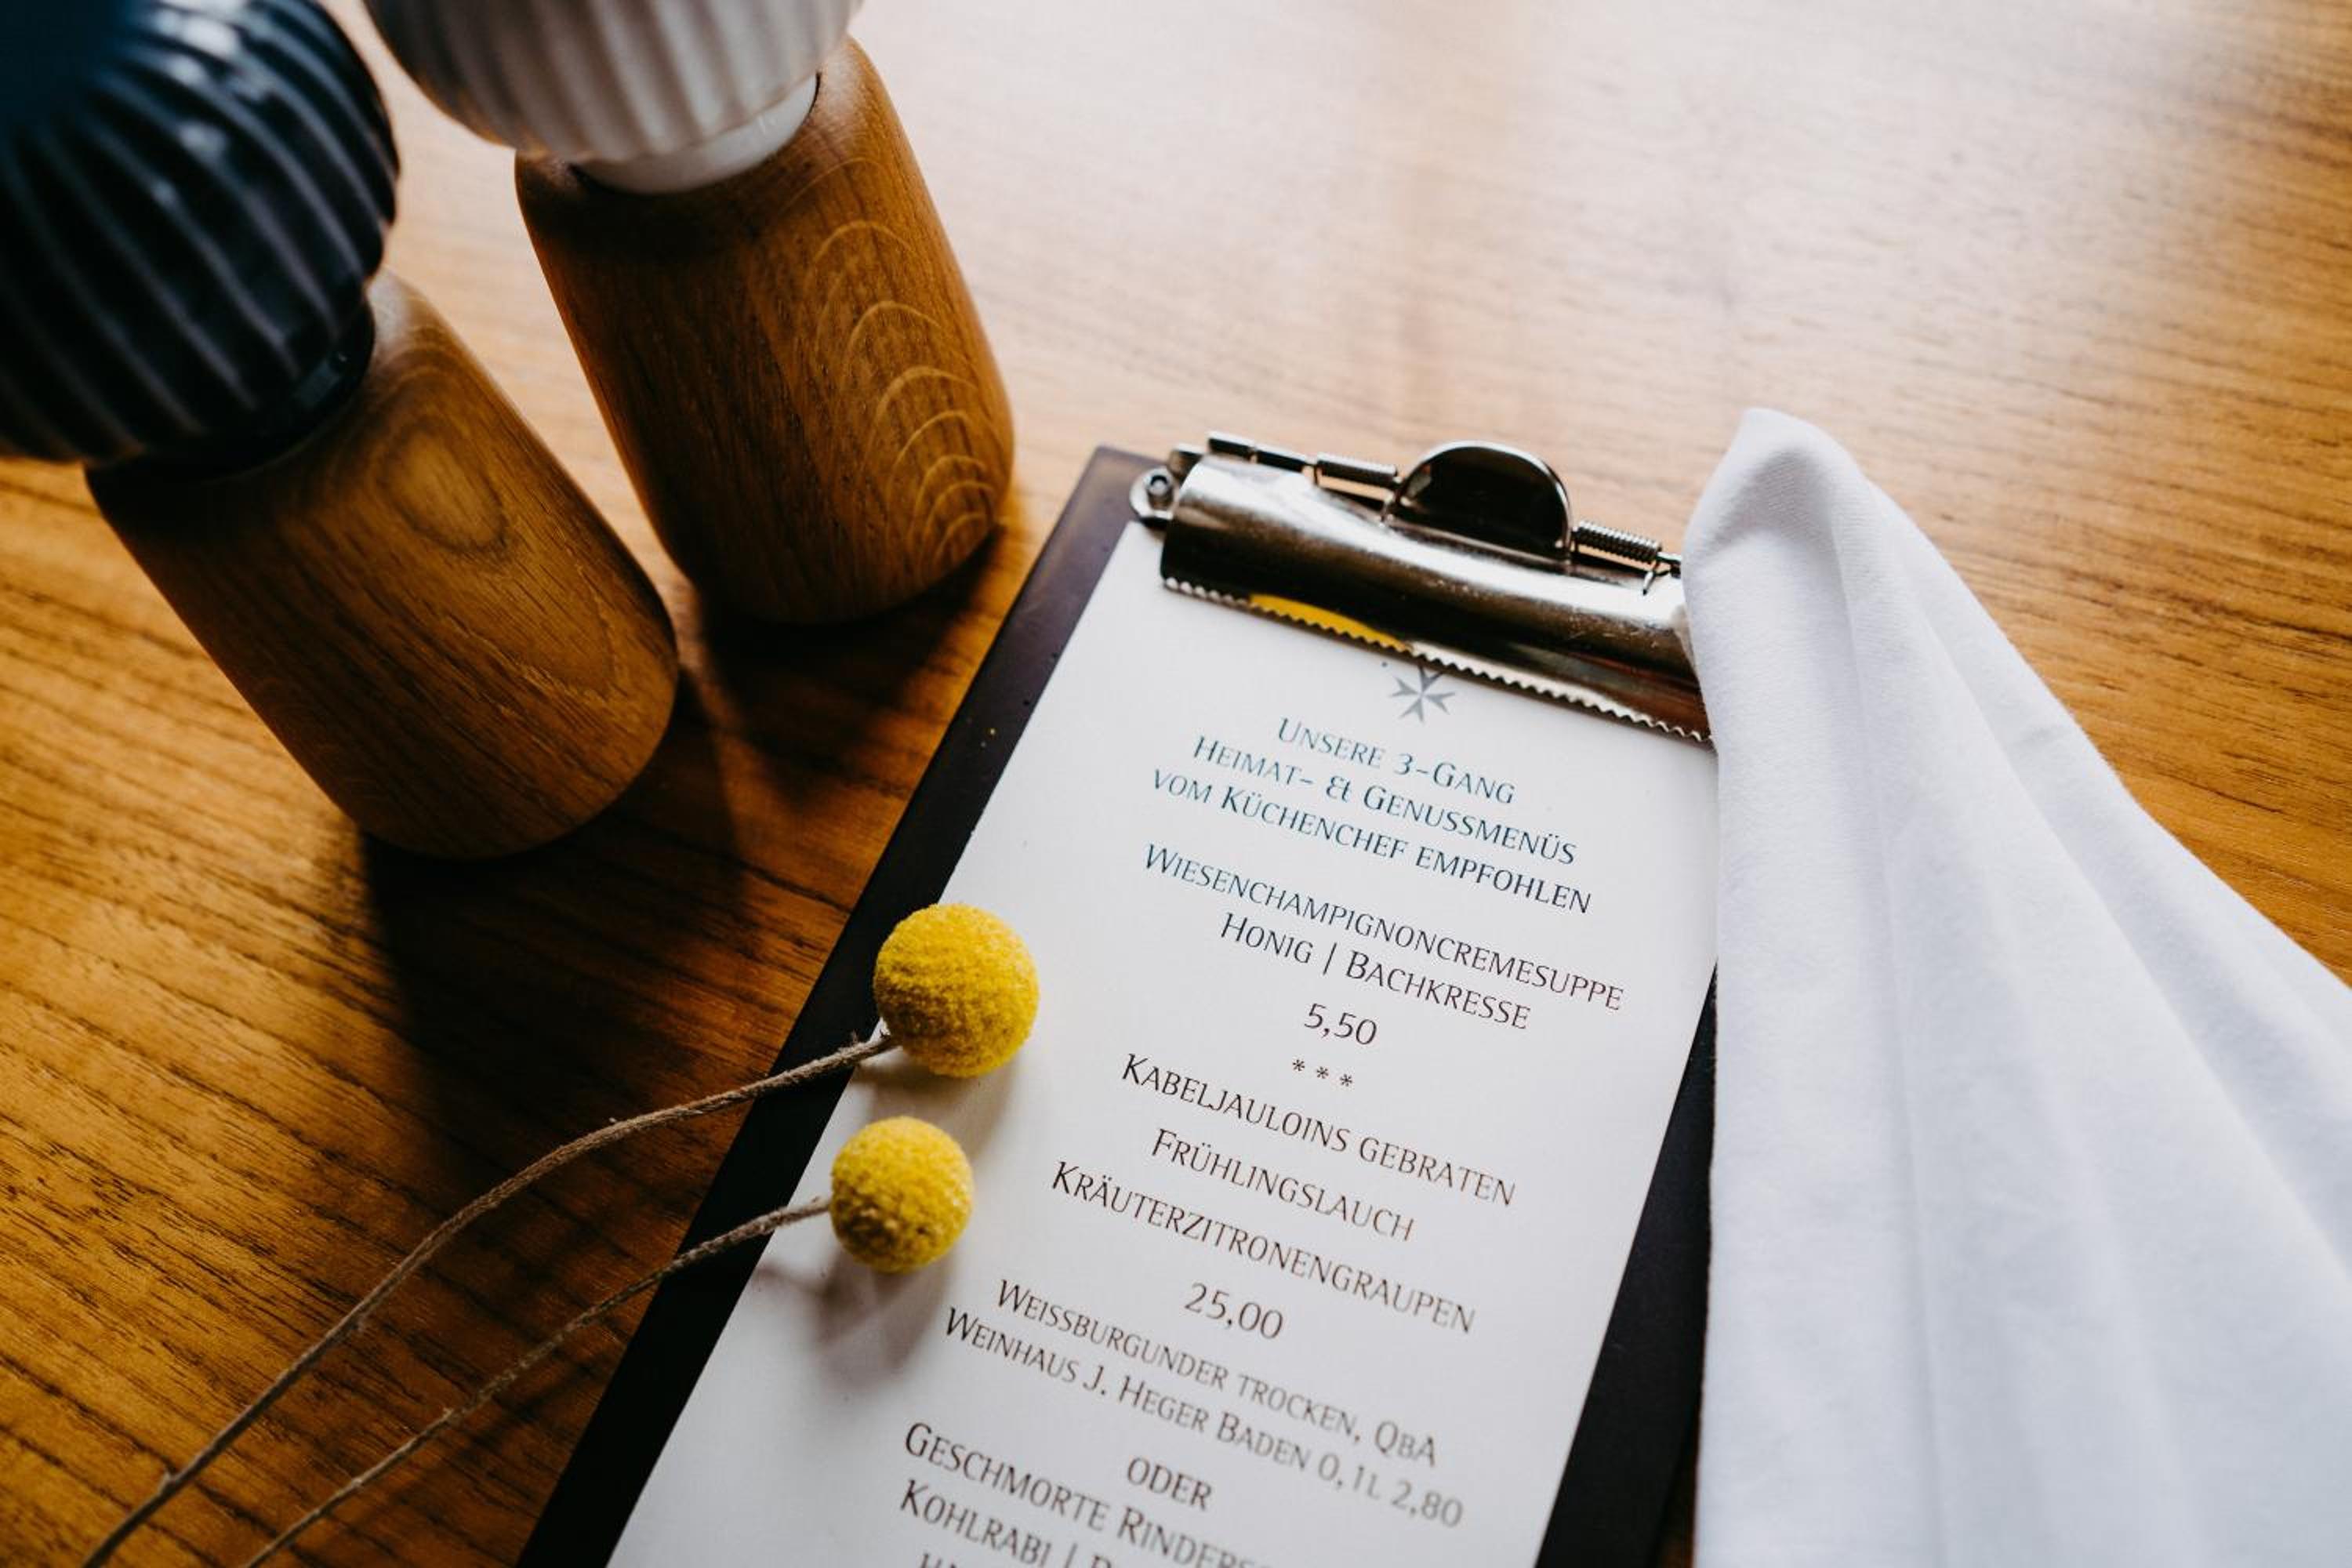 Unsere 3-Gang
Heimat- & Genussmenüs
vom Küchenchef empfohlen
Wiesenchampignoncremesuppe
Honig | Bachkresse
5,50
* * *
Kabeljauloins gebraten
Frühlingslauch
Kräuterzitronengraupen
25,00
Weissburgunder trocken, QbA
Weinhaus J. Heger Baden 0,1l 2,80
oder
Geschmorte
Kohlrabi |